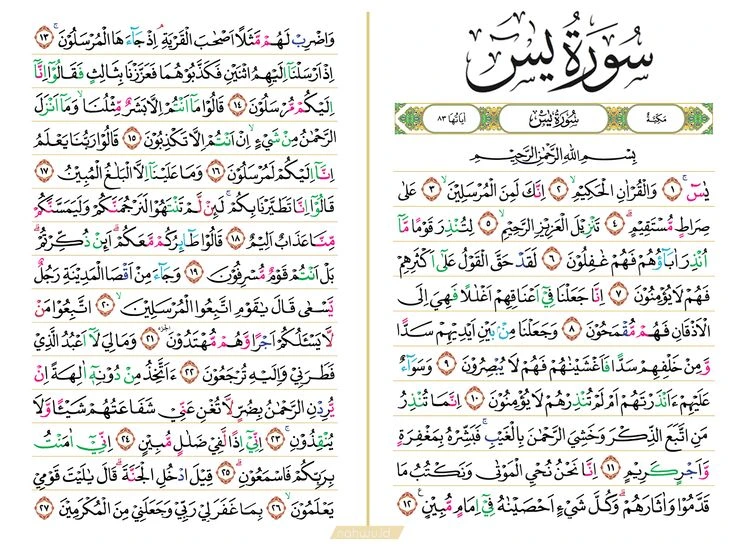 سُورَةُ يٰسٓ
مَكِّيَّةٌ سُوْرَةُ يٰسٓ اٰيَاتُهَا ٨٣
بِسْمِ اللّٰهِ الرَّحْمٰنِ الرَّحِيْمِ
يٰسٓ ۚ ١ وَالْقُرْاٰنِ الْحَكِيْمِ ۙ ٢ اِنَّكَ لَمِنَ الْمُرْسَلِيْنَ ۙ ٣ عَلٰى
صِرَاطٍ مُّسْتَقِيْمٍ ۗ ٤ تَنْزِيْلَ الْعَزِيْزِ الرَّحِيْمِ ۙ ٥ لِتُنْذِرَ قَوْمًا مَّآ
اُنْذِرَ اٰبَاۤؤُهُمْ فَهُمْ غٰفِلُوْنَ ٦ لَقَدْ حَقَّ الْقَوْلُ عَلٰٓى اَكْثَرِهِمْ
فَهُمْ لَا يُؤْمِنُوْنَ ٧ اِنَّا جَعَلْنَا فِيْٓ اَعْنَاقِهِمْ اَغْلٰلًا فَهِيَ اِلَى
الْاَذْقَانِ فَهُمْ مُّقْمَحُوْنَ ٨ وَجَعَلْنَا مِنْۢ بَيْنِ اَيْدِيْهِمْ سَدًّا
وَّمِنْ خَلْفِهِمْ سَدًّا فَاَغْشَيْنٰهُمْ فَهُمْ لَا يُبْصِرُوْنَ ٩ وَسَوَاۤءٌ
عَلَيْهِمْ ءَاَنْذَرْتَهُمْ اَمْ لَمْ تُنْذِرْهُمْ لَا يُؤْمِنُوْنَ ١٠ اِنَّمَا تُنْذِرُ
مَنِ اتَّبَعَ الذِّكْرَ وَخَشِيَ الرَّحْمٰنَ بِالْغَيْبِۚ فَبَشِّرْهُ بِمَغْفِرَةٍ
وَّاَجْرٍ كَرِيْمٍ ١١ اِنَّا نَحْنُ نُحْيِ الْمَوْتٰى وَنَكْتُبُ مَا
قَدَّمُوْا وَاٰثَارَهُمْۗ وَكُلَّ شَيْءٍ اَحْصَيْنٰهُ فِيْٓ اِمَامٍ مُّبِيْنٍ ۚ ١٢
وَاضْرِبْ لَهُمْ مَّثَلًا اَصْحٰبَ الْقَرْيَةِۘ اِذْ جَاۤءَهَا الْمُرْسَلُوْنَۚ ١٣
اِذْ اَرْسَلْنَآ اِلَيْهِمُ اثْنَيْنِ فَكَذَّبُوْهُمَا فَعَزَّزْنَا بِثَالِثٍ فَقَالُوْٓا اِنَّآ
اِلَيْكُمْ مُّرْسَلُوْنَ ١٤ قَالُوْا مَآ اَنْتُمْ اِلَّا بَشَرٌ مِّثْلُنَاۙ وَمَآ اَنْزَلَ
الرَّحْمٰنُ مِنْ شَيْءٍۙ اِنْ اَنْتُمْ اِلَّا تَكْذِبُوْنَ ١٥ قَالُوْا رَبُّنَا يَعْلَمُ
اِنَّآ اِلَيْكُمْ لَمُرْسَلُوْنَ ١٦ وَمَا عَلَيْنَآ اِلَّا الْبَلٰغُ الْمُبِيْنُ ١٧
قَالُوْٓا اِنَّا تَطَيَّرْنَا بِكُمْۚ لَىِٕنْ لَّمْ تَنْتَهُوْا لَنَرْجُمَنَّكُمْ وَلَيَمَسَّنَّكُمْ
مِّنَّا عَذَابٌ اَلِيْمٌ ١٨ قَالُوْا طَاۤىِٕرُكُمْ مَّعَكُمْۗ اَىِٕنْ ذُكِّرْتُمْۗ
بَلْ اَنْتُمْ قَوْمٌ مُّسْرِفُوْنَ ١٩ وَجَاۤءَ مِنْ اَقْصَا الْمَدِيْنَةِ رَجُلٌ
يَّسْعٰى قَالَ يٰقَوْمِ اتَّبِعُوا الْمُرْسَلِيْنَۙ ٢٠ اتَّبِعُوْا مَنْ
لَّا يَسْـَٔلُكُمْ اَجْرًا وَّهُمْ مُّهْتَدُوْنَ ٢١ وَمَا لِيَ لَآ اَعْبُدُ الَّذِيْ
فَطَرَنِيْ وَاِلَيْهِ تُرْجَعُوْنَ ٢٢ ءَاَتَّخِذُ مِنْ دُوْنِهٖٓ اٰلِهَةً اِنْ
يُّرِدْنِ الرَّحْمٰنُ بِضُرٍّ لَّا تُغْنِ عَنِّيْ شَفَاعَتُهُمْ شَيْـًٔا وَّلَا
يُنْقِذُوْنِۚ ٢٣ اِنِّيْٓ اِذًا لَّفِيْ ضَلٰلٍ مُّبِيْنٍ ٢٤ اِنِّيْٓ اٰمَنْتُ
بِرَبِّكُمْ فَاسْمَعُوْنِۗ ٢٥ قِيْلَ ادْخُلِ الْجَنَّةَۗ قَالَ يٰلَيْتَ قَوْمِيْ
يَعْلَمُوْنَۙ ٢٦ بِمَا غَفَرَ لِيْ رَبِّيْ وَجَعَلَنِيْ مِنَ الْمُكْرَمِيْنَ ٢٧
nahwu.id